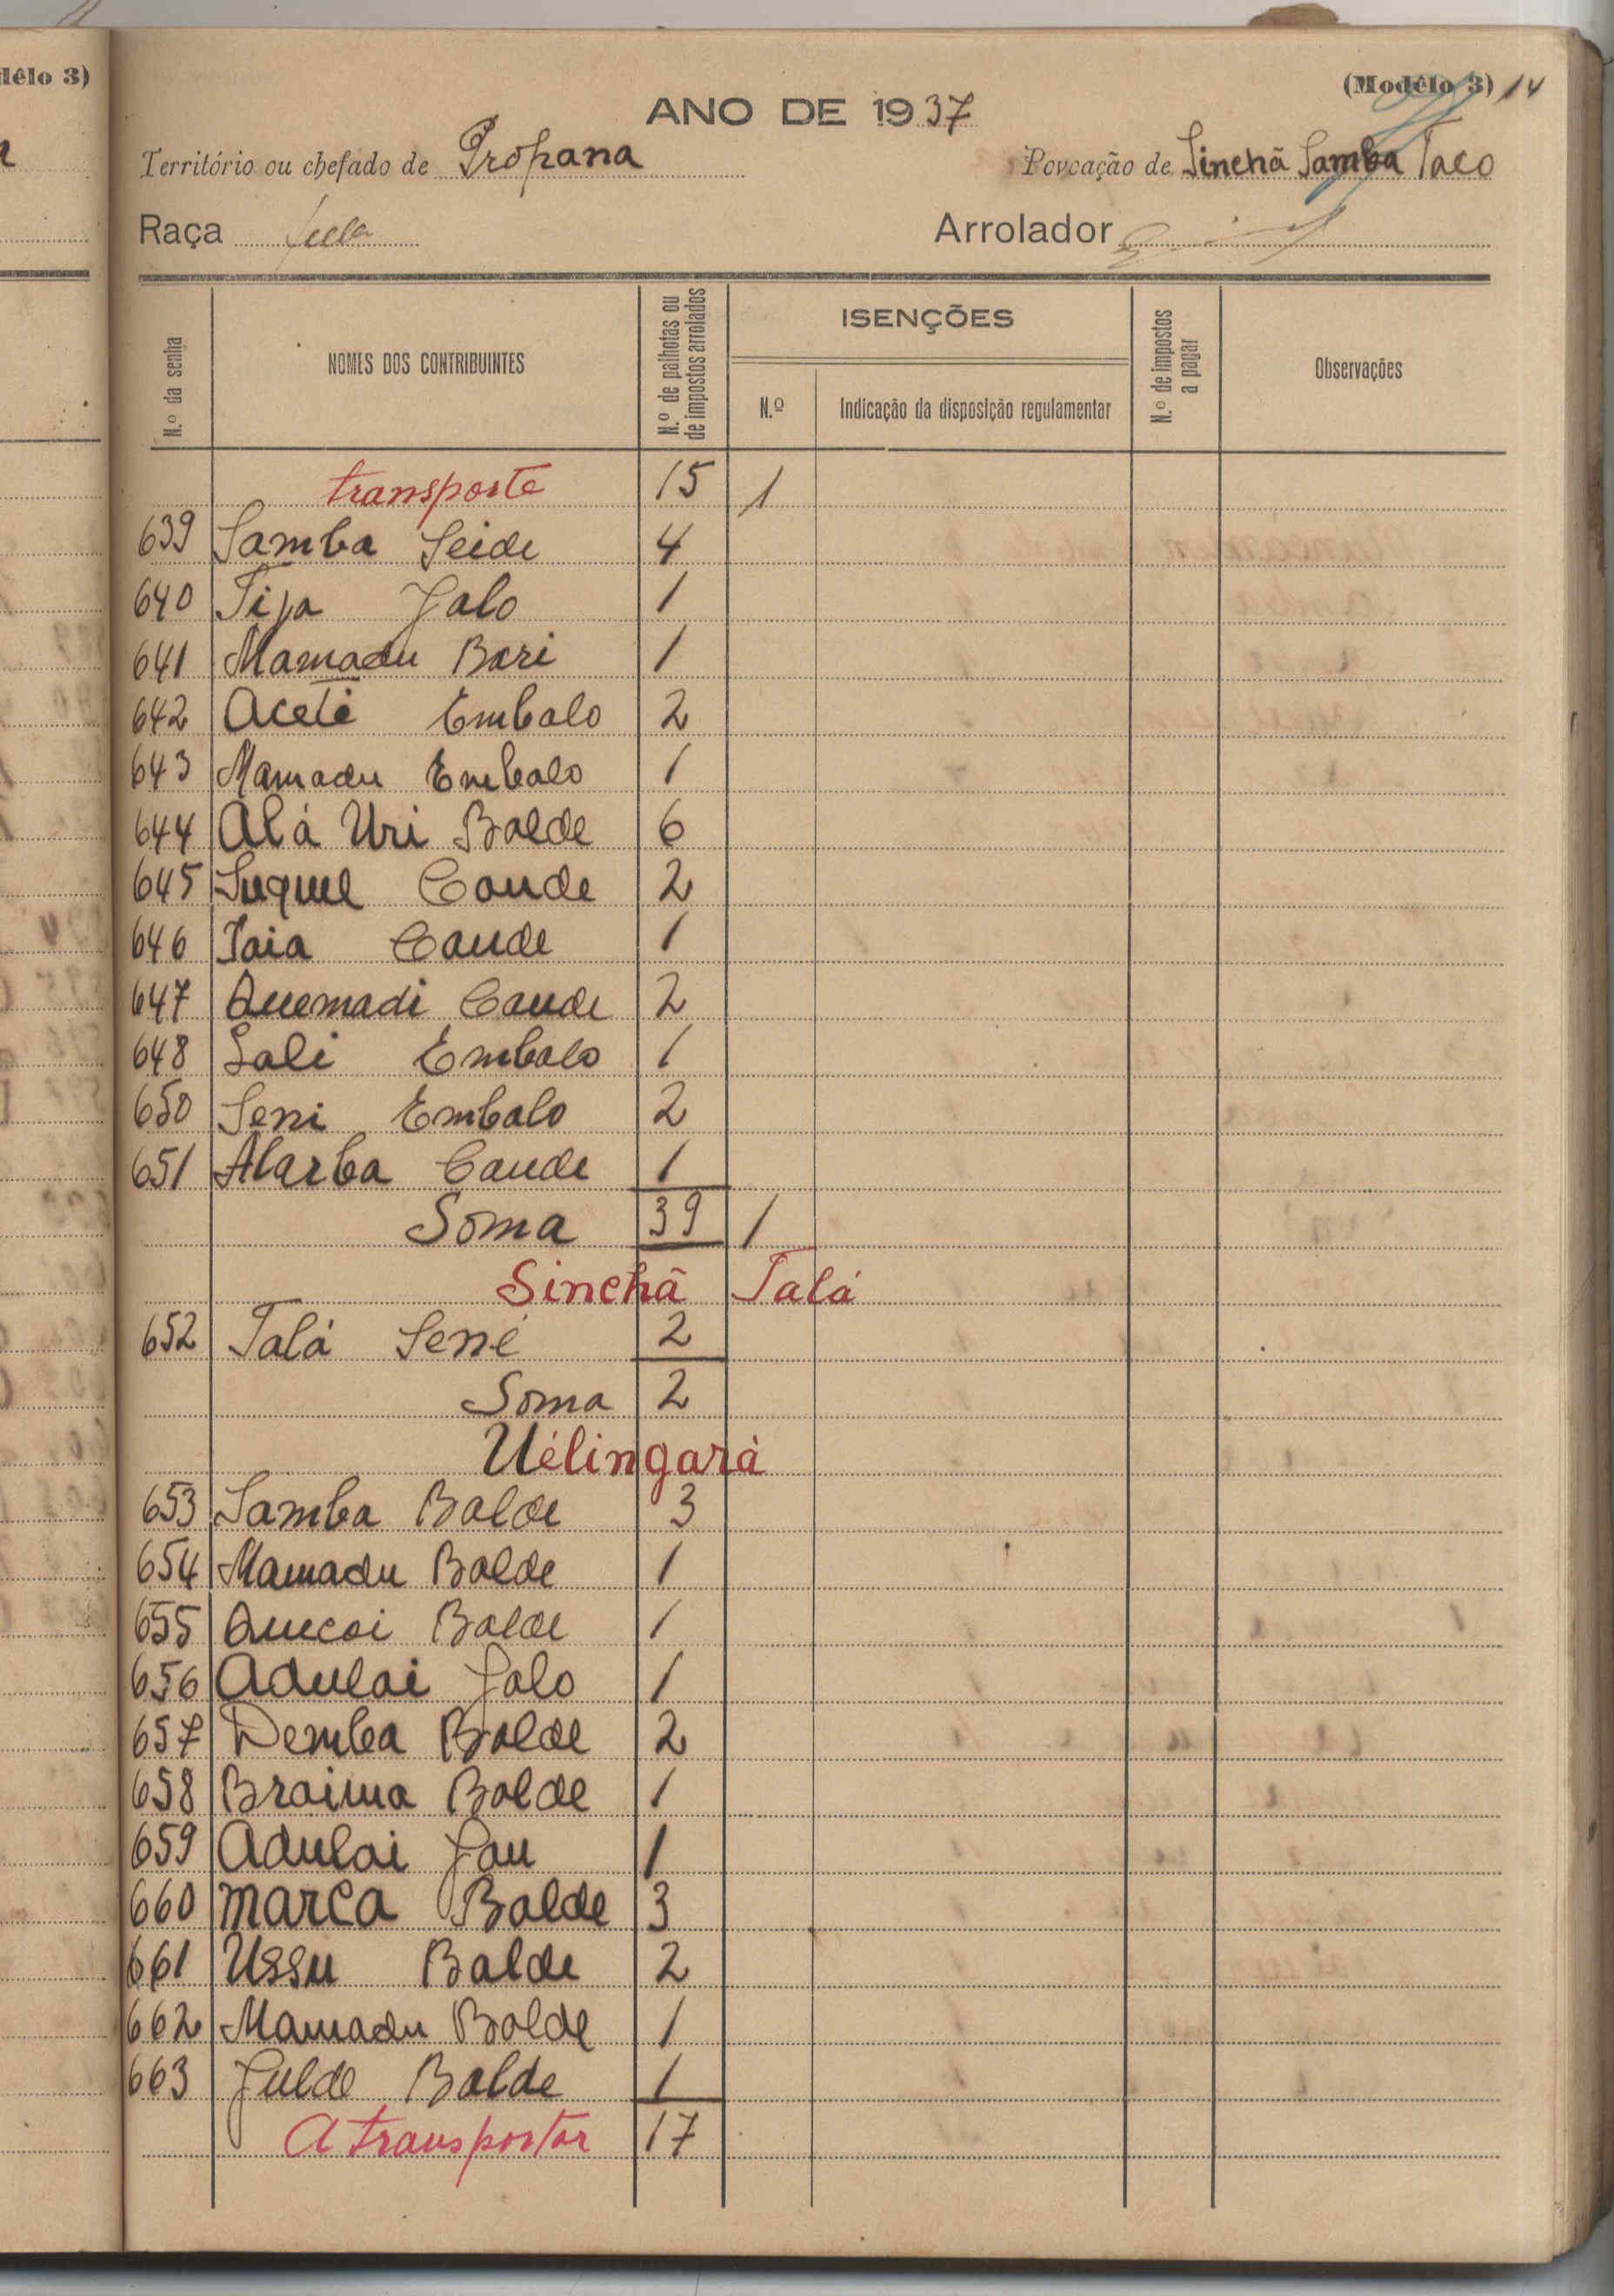 dêlo 3)
(Modêlo 3) 14
ANO DE 1937
Território ou chefado de Propana
Povoação de Sinchã Samba Taco
Raça fula
Arrolador
N.º da senha
NOMES DOS CONTRIBUINTES
N.º de palhotas ou de impostos arrolados
ISENÇÕES
N.º
Indicação da disposição regulamentar
N.º de impostos a pagar
Observações
transporte 15 1
639 Samba Seide 4
640 Tija Jalo 1
641 Mamadu Bari 1
642 Aceté Embalo 2
643 Mamadu Embalo 1
644 Alá Uri Balde 6
645 Suquel Cande 2
646 Iaia Cande 1
647 Quemadi Cande 2
648 Sali Embalo 1
650 Seni Embalo 2
651 Alarba Cande 1
Soma 39 1
Sinchã Talá
652 Talá Sené 2
Soma 2
Uélingará
653 Samba Balde 3
654 Mamadu Balde 1
655 Quecoi Balde 1
656 Adulai Jalo 1
657 Demba Balde 2
658 Braima Balde 1
659 Adulai Jau 1
660 Marca Balde 3
661 Ussu Balde 2
662 Mamadu Balde 1
663 Julde Balde 1
A transportar 17